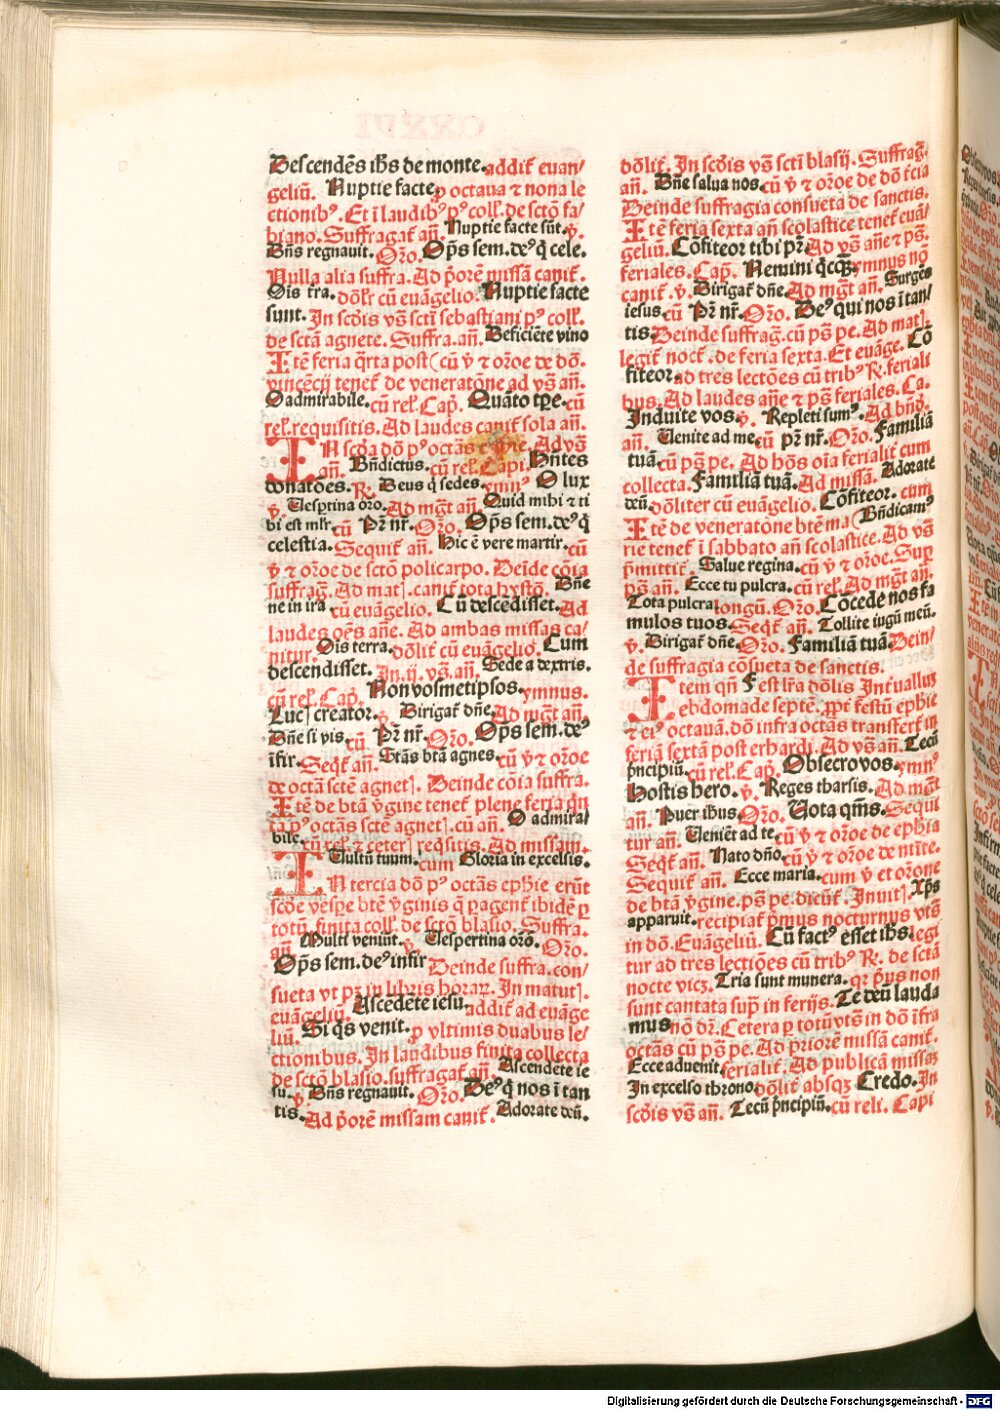 Descendēs ihs de monte. addit᷑ euan/
geliū. Nuptie facte, ꝑ octaua ⁊ nona le
ctionibꝰ. Et ī laudibꝰ pꝰ coll. de sctō fa/
biano. Suffragat᷑ añ. Nuptie facte sūt. ℣.
Bn̄s regnauit. Oro. Op̄s sem. deꝰ q̄ cele.
Nulla alia suffra. Ad p̄orē missā canit᷑.
Ois t̄ra. dōlr̄ cū euāgelio. Nuptie facte
sunt. In scōis vs̄ scti sebastiani pꝰ coll.
de sctā agnete. Suffra. añ. Deficiēte vino
Itē feria q̄rta post (cū ℣ ⁊ orōe de dō.
vincēcij tenet᷑ de veneratōne ad vs̄ añ.
O admirabile. cū rel. Cap̄. Quāto tp̄e. cū
rel. requisitis. Ad laudes canit᷑ sola añ.
In scōa dō pꝰ octās epie. Ad vs̄
añ. Bn̄dictus. cū rel. Capi. Hn̄tes
donatōes. ℟. Deus q̄ sedes. ymnꝰ O lux
℣. Vesp̄tina oro. Ad mgt᷑ añ. Quid mihi ⁊ ti
bi est mlr̄. cū Pr̄ nr̄. Oro. Op̄s sem. deꝰ q̄
celestia. Sequit᷑ añ. Hic ē vere martir. cū
℣ ⁊ orōe de sctō policarpo. Deīde cōia
suffrag̃. Ad mat]. canit᷑ tota hystō. Dn̄e
ne in ira. cū euāgelio. Cū descēdisset. Ad
laudes oēs añe. Ad ambas missas ca/
nitur. Ois terra. dōlit᷑ cū euāgelio. Cum
descendisset. In .ij. vs̄. añ. Sede a dextris.
cū rel. Cap̄. Non vosmetipsos. ymnus.
Luc] creator. ℣. Dirigat᷑ dn̄e. Ad mgt᷑ añ.
Dn̄e si vis. cū Pr̄ nr̄. Oro. Op̄s sem. deꝰ
īfir. Seqt᷑ añ. Stās btā agnes. cū ℣ ⁊ orōe
de octā sctē agnet]. Deinde cōia suffra.
Itē de btā v̄gine tenet᷑ plene feria q̄n
ta pꝰ octās sctē agnet]. cū añ. O admira/
bile. cū rel. ⁊ ceter] reqsitis. Ad missam.
Vultū tuum. cum Gloria in excelsis.
In tercia dō pꝰ octās ephie erūt
scōe vesp̄e btē v̄ginis q̄ pagent᷑ ibidē ꝑ
totū. finita coll. de sctō blasio. Suffra.
añ. Multi veniūt. ℣. Vespertina oro. Oro.
Op̄s sem. deꝰ infir Deinde suffra. con/
sueta vt pr̄ in libris horaꝝ. In matut].
euāgeliū. Ascēdēte iesu. addit᷑ ad euāge
liū. Si q̄s venit. ꝑ vltimis duabus le/
ctionibus. In laudibus finita collecta
de sctō blasio. suffragat᷑ añ. Ascendēte ie
su. ℣. Dn̄s regnauit. Oro. Deꝰ q̄ nos ī tan
tis. Ad p̄orē missam canit᷑. Adorate deū.
dōlit᷑. In scōis vs̄ scti blasij. Suffrag̃.
añ. Dn̄e salua nos. cū ℣ ⁊ orōe de dō t̄cia
Deinde suffragia consueta de sanctis.
Itē feria sexta añ scolastice tenet᷑ euā/
geliū. Cōfiteor tibi pr̄. Ad vs̄ añe ⁊ ps̄.
feriales. Cap̄. Nemini q̄cꝗ̄. ymnus nō
canit᷑. ℣. Dirigat᷑ dn̄e. Ad mgt᷑ añ. Surgēs
iesus. cū Pr̄ nr̄. Oro. Deꝰ qui nos ī tan/
tis. Deinde suffrag̃. cū ps̄ pe. Ad mat].
legit᷑ noct᷑. de feria sexta. Et euāge. Cō
fiteor. ad tres lectōes cū tribꝰ ℟. feriali
bus. Ad laudes añe ⁊ ps̄ feriales. Ca.
Induite vos. ℣. Repleti sumꝰ. Ad bn̄d.
añ. Venite ad me. cū pr̄ nr̄. Oro. Familiā
tuā. cū ps̄ pe. Ad hōs oīa ferialit᷑ cum
collecta. Familiā tuā. Ad missā. Adorate
deū. dōliter cū euāgelio. Cōfiteor. cum
Itē de veneratōne btē ma( Bn̄dicamꝰ
rie tenet᷑ ī sabbato añ scolastice. Ad vs̄
p̄mittit᷑. Salue regina. cū ℣ ⁊ orōe. Suꝑ
ps̄ añ. Ecce tu pulcra. cū rel. Ad mgt᷑ añ.
Tota pulcra. longū. Oro. Cōcede nos fa
mulos tuos. Seqt᷑ añ. Tollite iugū meū.
℣. Dirigat᷑ dn̄e. Oro. Familiā tuā. Dein/
de suffragia cōsueta de sanctis.
Item qn̄ F est lr̄a dōlis Int̄uallus
ebdomade septē. xp̄t festū ephie
⁊ eiꝰ octauā. dō infra octās transfert᷑ in
feriā sextā post erhardi. Ad vs̄ añ. Tecū
p̄ncipiū. cū rel. Cap̄. Obsecro vos. ymnꝰ
Hostis hero. ℣. Reges tharsis. Ad mgt᷑
añ. Puer ihus. Oro. Vota qm̄s. Sequi
tur añ. Veniēt ad te. cū ℣ ⁊ orōe de ephia
Seqt᷑ añ. Nato dn̄o. cū ℣ ⁊ orōe de niīte.
Sequit᷑ añ. Ecce maria. cum ℣ et orone
de btā v̄gine. ps̄ pe. dicūt᷑. Inuit]. Xp̄s
apparuit. recipiat᷑ p̄mus nocturnus vts̄
in dō. Euāgeliū. Cū factꝰ esset ihs. legi
tur ad tres lectiōes cū tribꝰ ℟. de sctā
nocte vicz. Tria sunt munera. qr p̄us non
sunt cantata sup̄ in ferijs. Te deū lauda
mus nō dr̄. Cetera ꝑ totū vtē in dō īfra
octās cū ps̄ pe. Ad priorē missā canit᷑.
Ecce aduenit. ferialit᷑. Ad publicā missaꝫ
In excelso throno dōlit᷑ absqꝫ Credo. In
scōis vs̄ añ. Tecū p̄ncipiū. cū reli. Capi
Digitalisierung gefördert durch die Deutsche Forschungsgemeinschaft - DFG